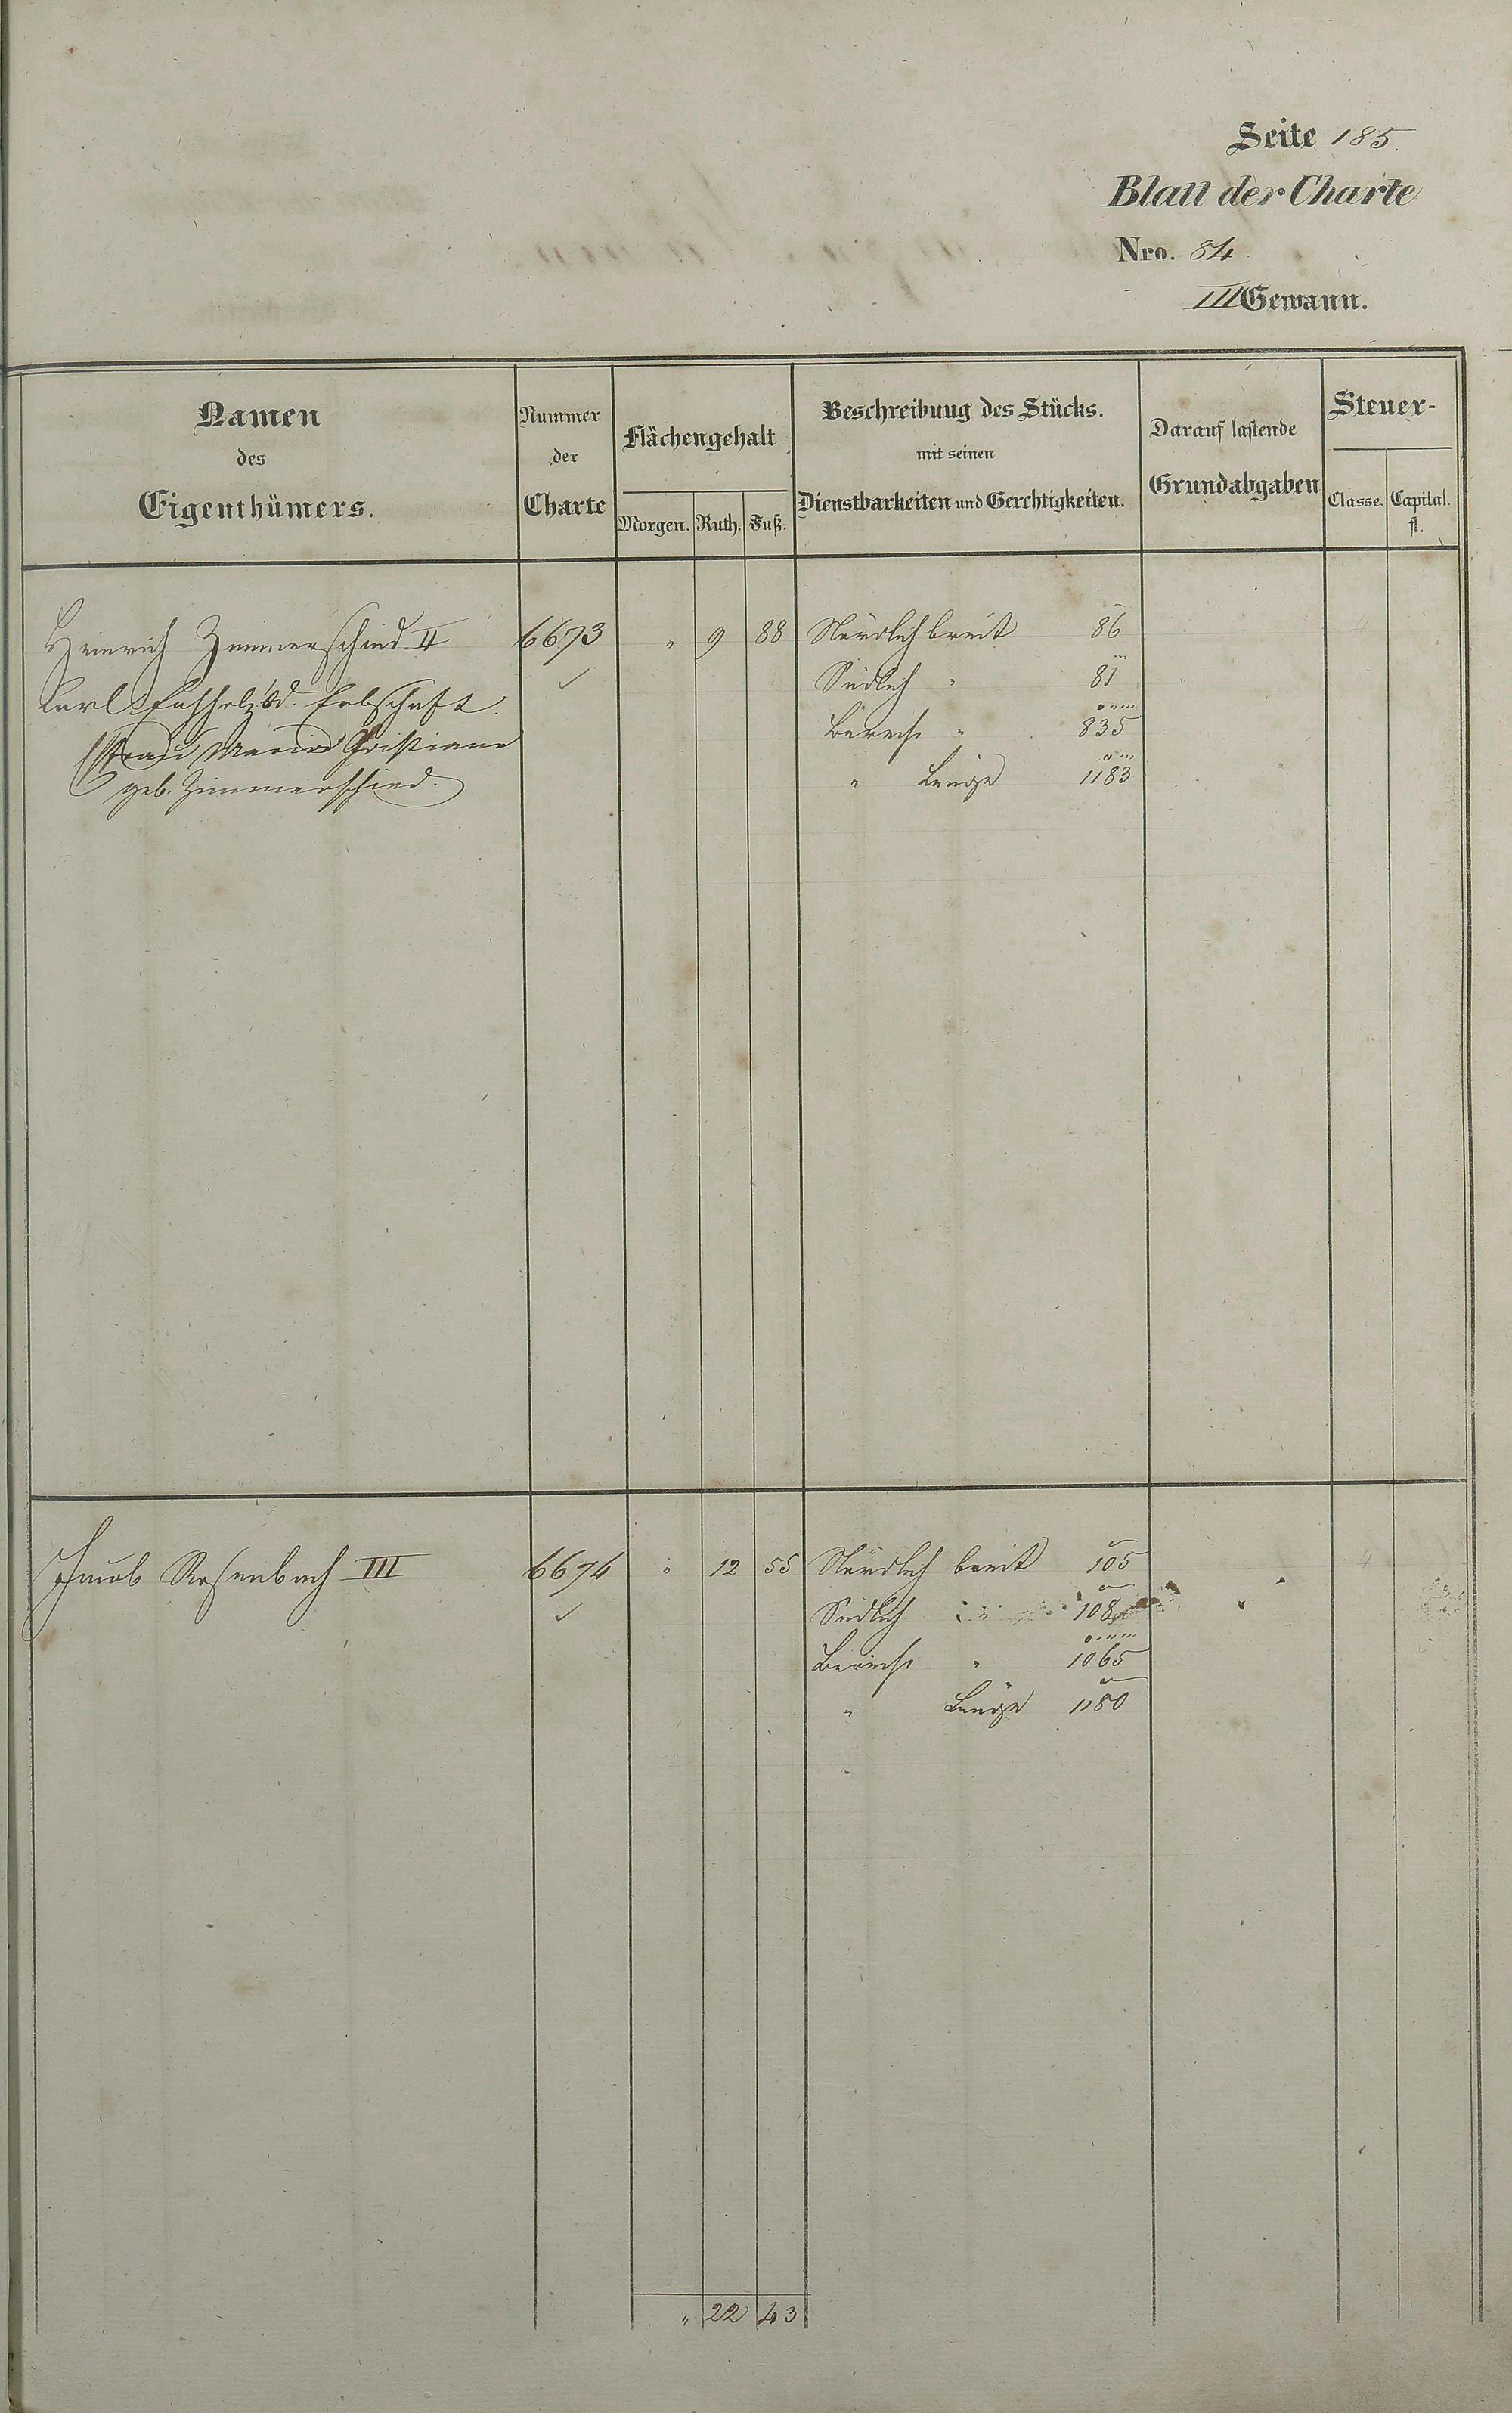 Seite 185.
Blatt der Charte
Nro. 84.
III Gewann.
Namen des Eigenthümers.
Nummer der Charte
Flächengehalt
Morgen. Ruth. Fuß.
Beschreibung des Stücks. mit seinen Dienstbarkeiten und Gerchtigkeiten.
Darauf lastende Grundabgaben
Steuer-
Classe. Capital. fl.
Heinrich Zimmerschied II 6673 " 9 88 Nördlich breit 86
Südlich " 81
Carl Erbschaft.
Berech " 835
Frau Maria Christiane
" Länge 1183
geb. Zimmerschied.
Jacob Rosenbach III 6674 " 12 55 Nördlich breit 105
Südlich " 108
Berech " 1065
" Länge 1180
" 22 43